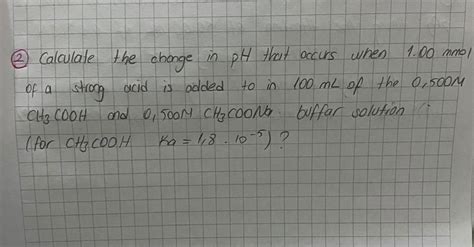 ② Calculate the change in pH that occurs when 1.00 mmol
of a strong acid is added to in 100 mL of the 0,500M
CH3COOH and 0,500M CH3COONa buffar solution
(for CH3COOH Ka = 1,8 . 10⁻⁵) ?